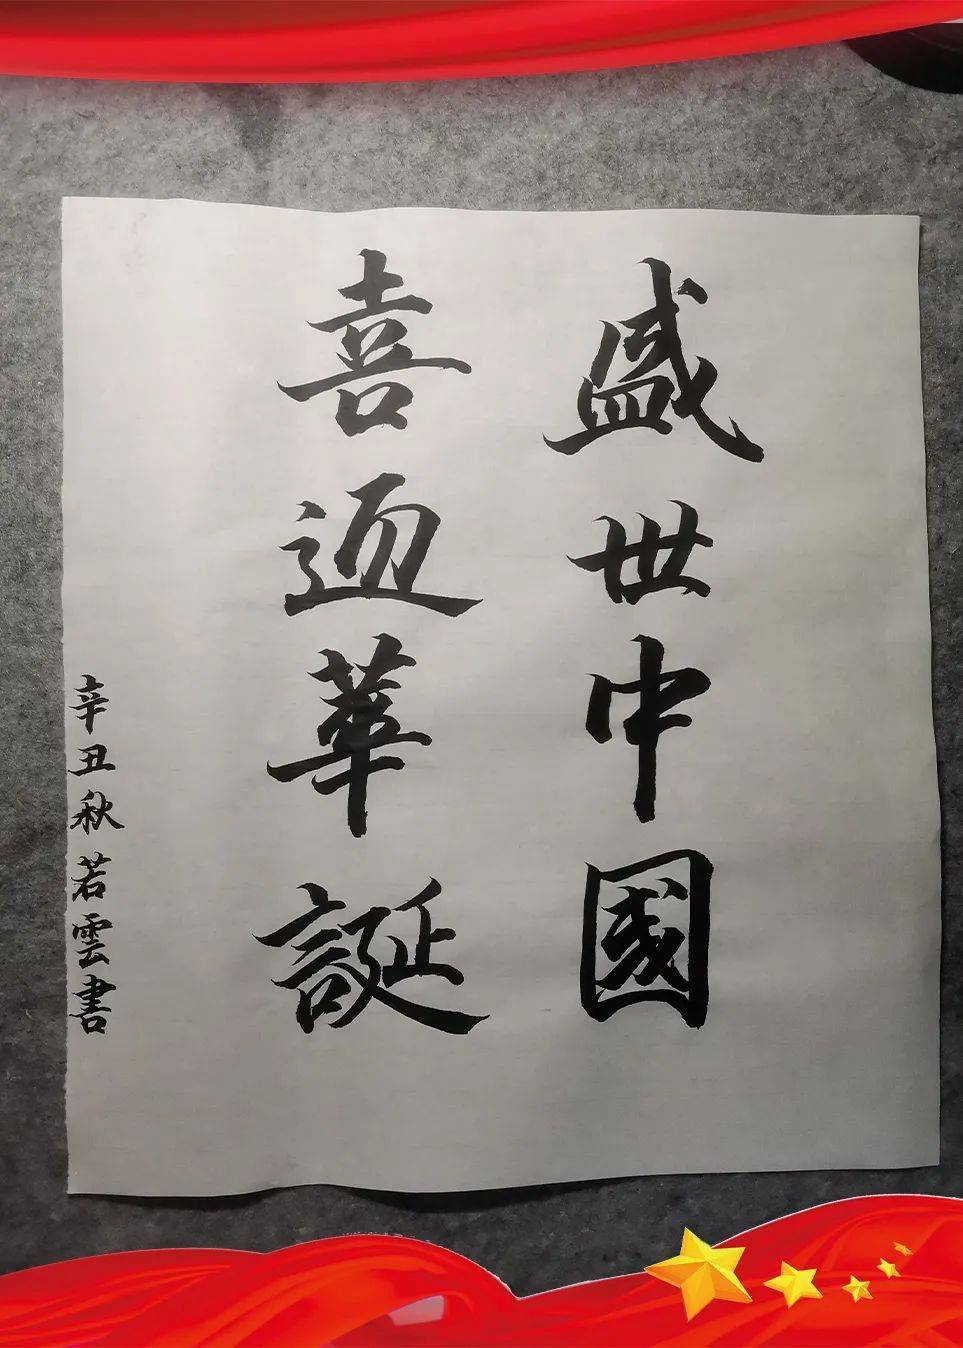 盛世中國
喜迎華誕
辛丑秋若雲書